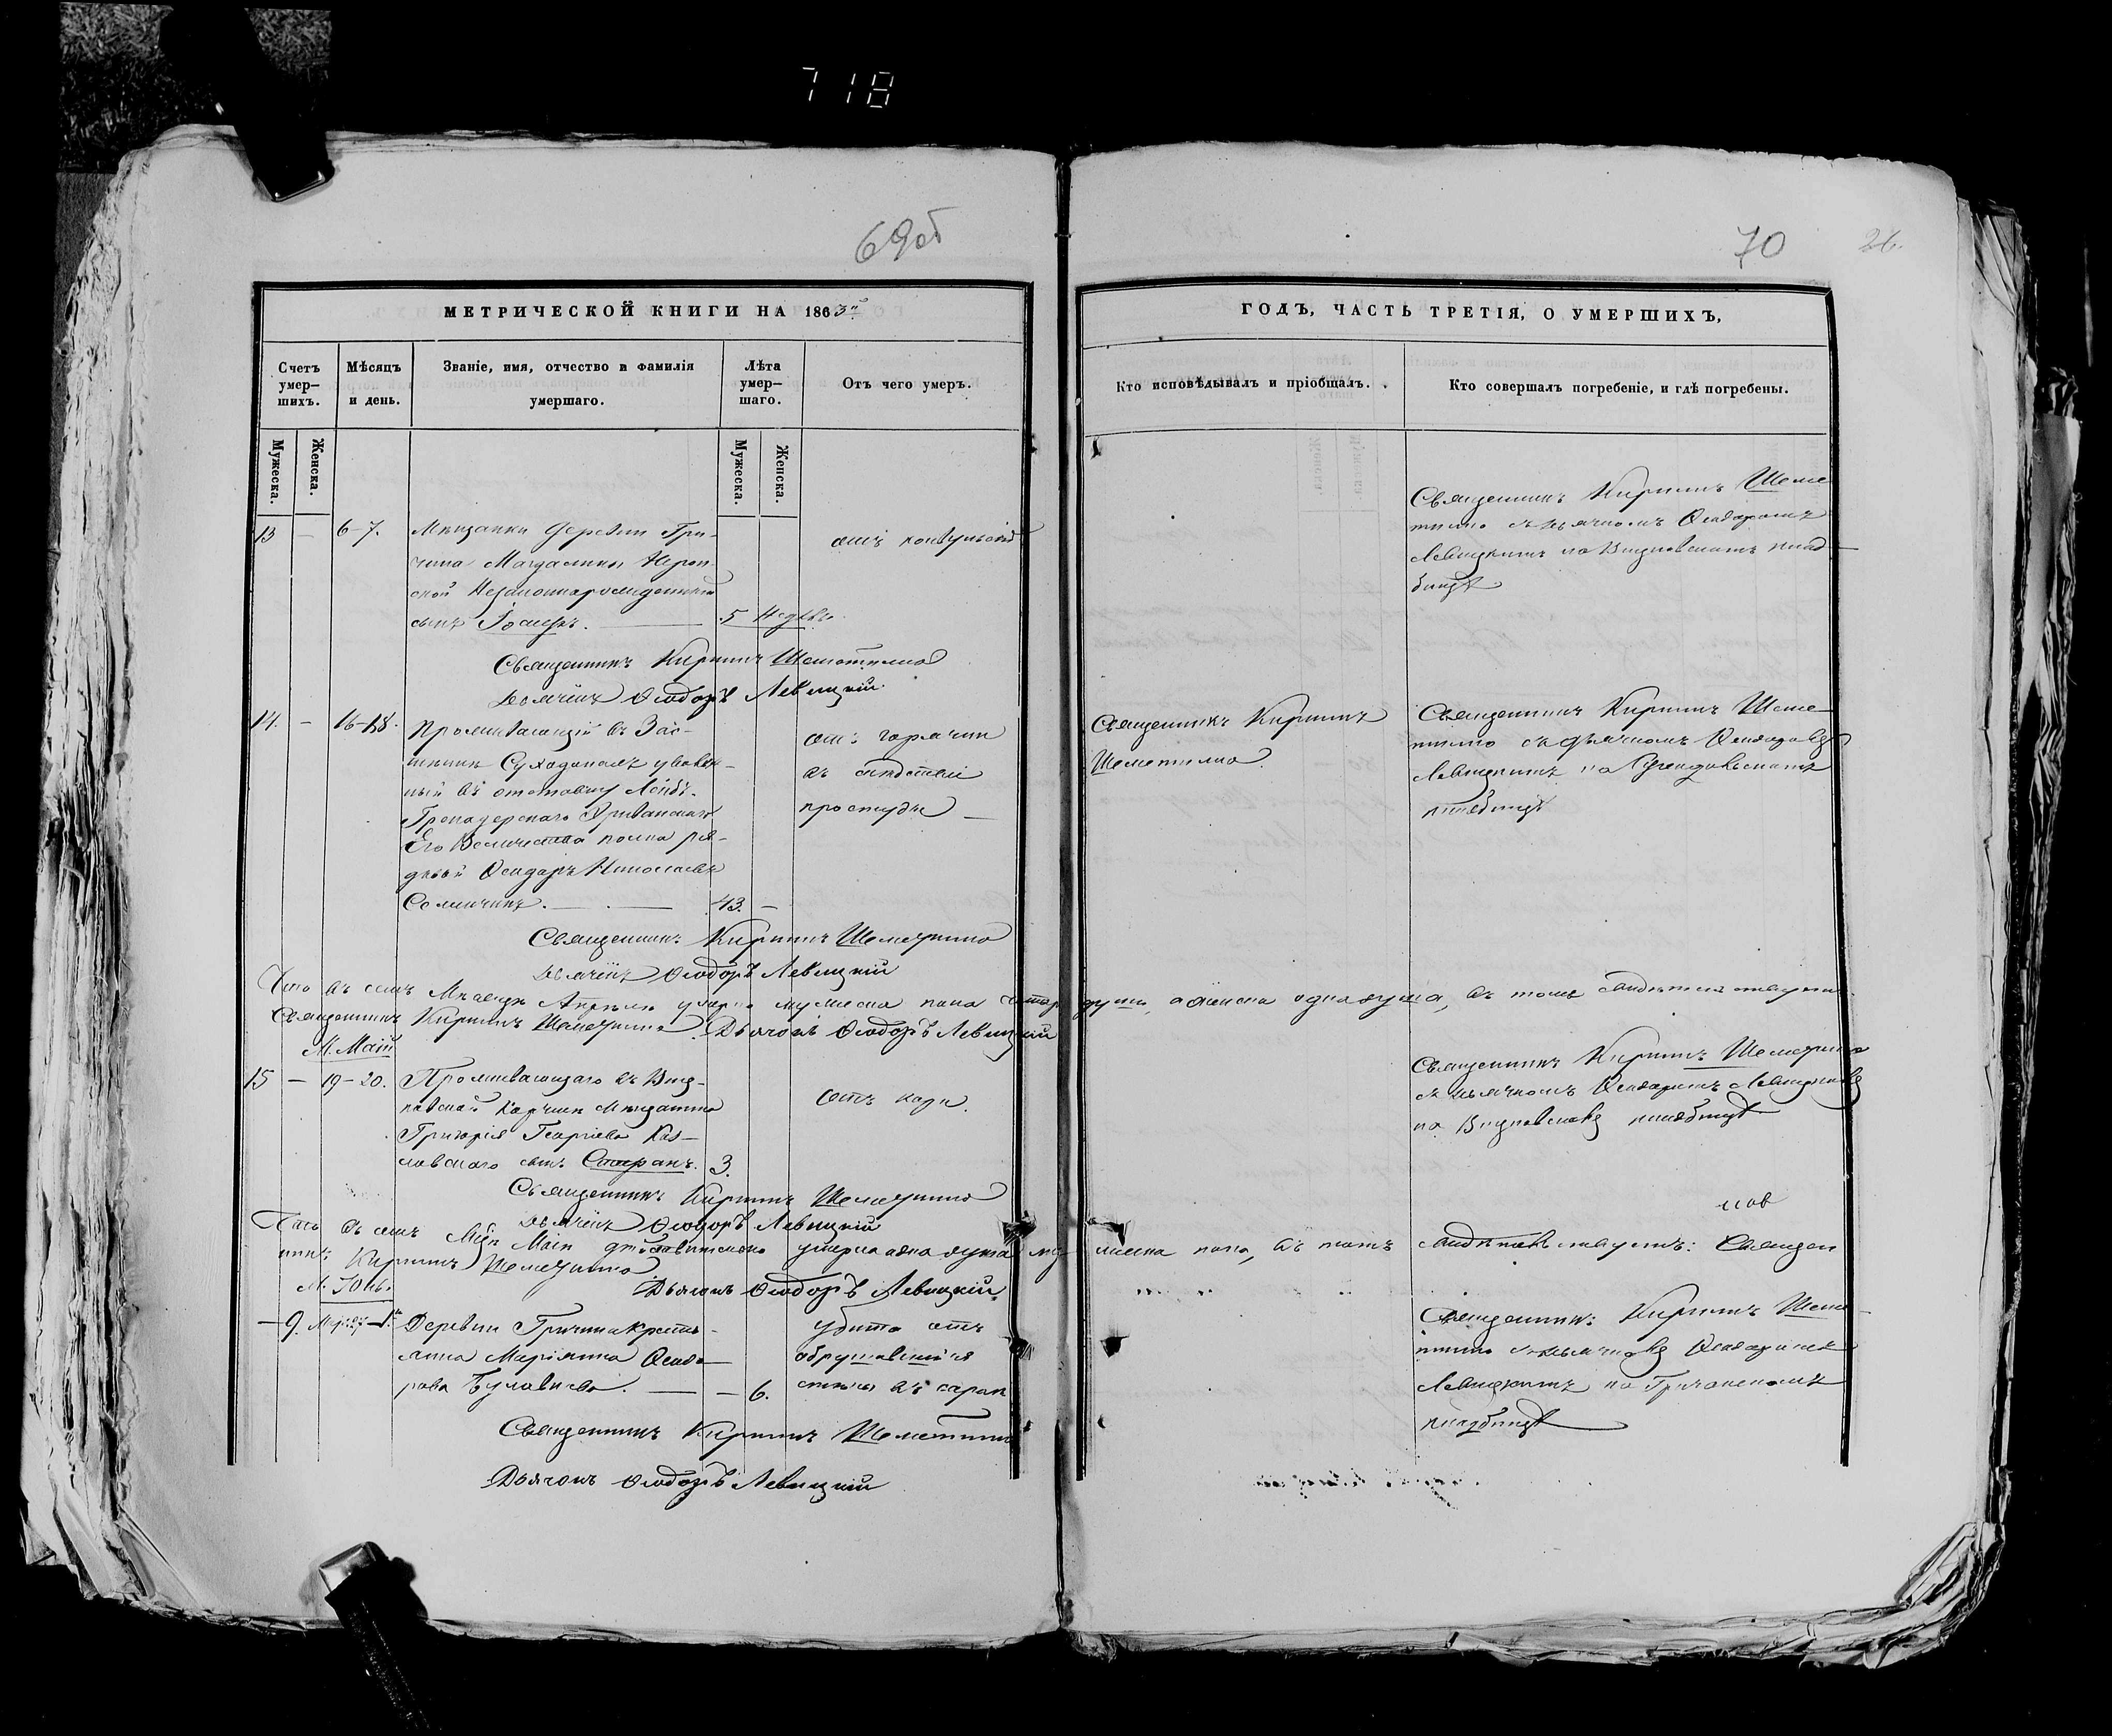 718
69об
70
26.
МЕТРИЧЕСКОЙ КНИГИ НА 1863й
ГОДЪ, ЧАСТЬ ТРЕТІЯ, О УМЕРШИХЪ,
Счетъ умер-шихъ.
Мѣсяцъ и день.
Званіе, имя, отчество и фамилія умершаго.
Лѣта умер-шаго.
Отъ чего умеръ.
Кто исповѣдывалъ и пріобщалъ.
Кто совершалъ погребеніе, и гдѣ погребены.
Мужеска.
Женска.
Мужеска.
Женска.
13 — 6-7. Мѣщанки деревни Гри-
чина Магдалины
ской Незаконнорожденный
сынъ Іосифъ. 5 Недѣль.
отъ конвульсій
Священникъ Кириллъ Шеме
тилло съ дьячкомъ Ѳеодоромъ
Левицкимъ на клад
бищѣ
Священникъ Кириллъ Шеметилло
Дьячекъ Ѳеодоръ Левицкій.
14. — 16-18. Проживающій въ Зас-
тѣнкѣ уволен-
ный въ отставку Лейбъ.
Гренадерскаго Эриванскаго
Его Величества полка ря-
довой Ѳеодоръ Николаевъ
43. —
отъ горячки
въ слѣдствіи
простуды —
Священникъ Кириллъ
Шеметилло.
Священникъ Кириллъ Шеме-
тилло съ дьячкомъ Ѳеодоромъ
Левицкимъ на
кладбищѣ
Священникъ Кириллъ Шеметилло
Дьячекъ Ѳеодоръ Левицкій
Что въ семъ Мѣсяцѣ Апрѣлѣ умерло мужеска пола душъ, а женска одна душа, въ томъ
Священникъ Кириллъ Шеметилло. Дьячокъ Ѳеодоръ Левицкій
М. Май
15 — 19-20. Проживающаго въ Виц-
ковской Корчмѣ Мѣщанина
Григорія Георгіева Коз-
ловскаго сынъ Стефанъ. 3.
Отъ кори.
Священникъ Кириллъ Шеметилло
съ дьячкомъ Ѳеодоромъ Левицкимъ
на кладбищѣ
Священникъ Кириллъ Шеметилло
Дьячекъ Ѳеодоръ Левицкій
Что въ семъ М-цѣ Маіи дѣйствительно умерла одна душа му- жеска пола, въ томъ Священ
никъ Кириллъ Шеметилло
Дьячокъ Ѳеодоръ Левицкій.
М. Юнь.
— 9. Деревни Гричина кресть-
янка Маріянна Ѳеодо-
рова — — 6.
убита отъ
обрушившейся
стѣны въ сараѣ
Священникъ Кириллъ Шеме-
тилло съ дьячкомъ Ѳеодоромъ
Левицкимъ на Гричинскомъ
кладбищѣ
Священникъ Кириллъ Шеметилло
Дьячокъ Ѳеодоръ Левицкій